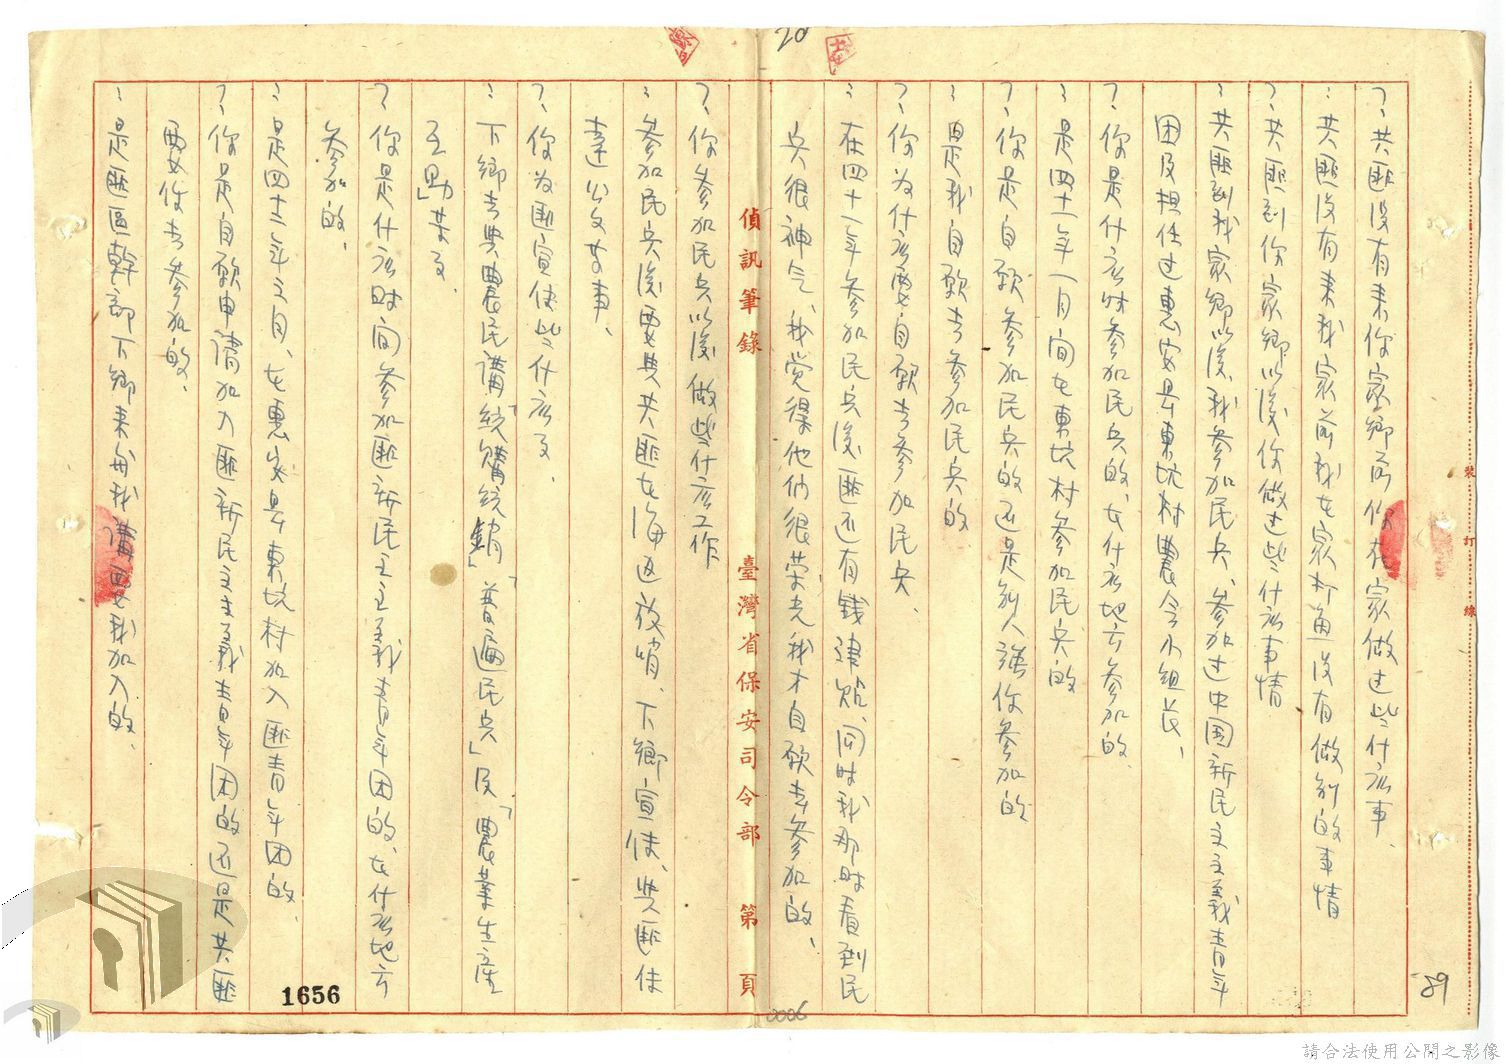 20
?、共匪沒有来你家鄉前你在家做过些什么事、
：共匪沒有来我家前我在家打魚沒有做别的事情
?、共匪到你家鄉以後你做过些什么事情
：共匪到我家鄉以後我参加民兵、参加过中国新民主主義青年
团及担任过惠安县東坑村農会小组長、
?、你是什么时参加民兵的、在什么地方参加的、
：是四十一年一月间在東坑村参加民兵的
?、你是自願参加民兵的还是别人强你参加的
：是我自願去参加民兵的
?、你为什么要自願去参加民兵、
：在四十一年参加民兵後匪还有钱津贴、同时我那时看到民
兵很神气、我觉得他们很荣光我才自願去参加的、
偵訊筆錄　臺灣省保安司令部　第　頁
?、你参加民兵以後做些什么工作
：参加民兵後要與共匪在海边放哨、下鄉宣传、與匪传
達公文等事、
?、你为匪宣传些什么？
：下鄉去與農民講「統購統銷」「普遍民兵」及「農業生産
互助」等 、
?、你是什么时间参加匪新民主主義青年团的、在什么地方
参加的、
：是四十二年 月、在惠安县東坑村加入匪青年团的、
?、你是自願申請加入匪新民主主義青年团的还是共匪
要你去参加的、
：是匪區幹部下鄉来和我講要我加入的、
裝　訂　線
1656
0006
89
請合法使用公開之影像